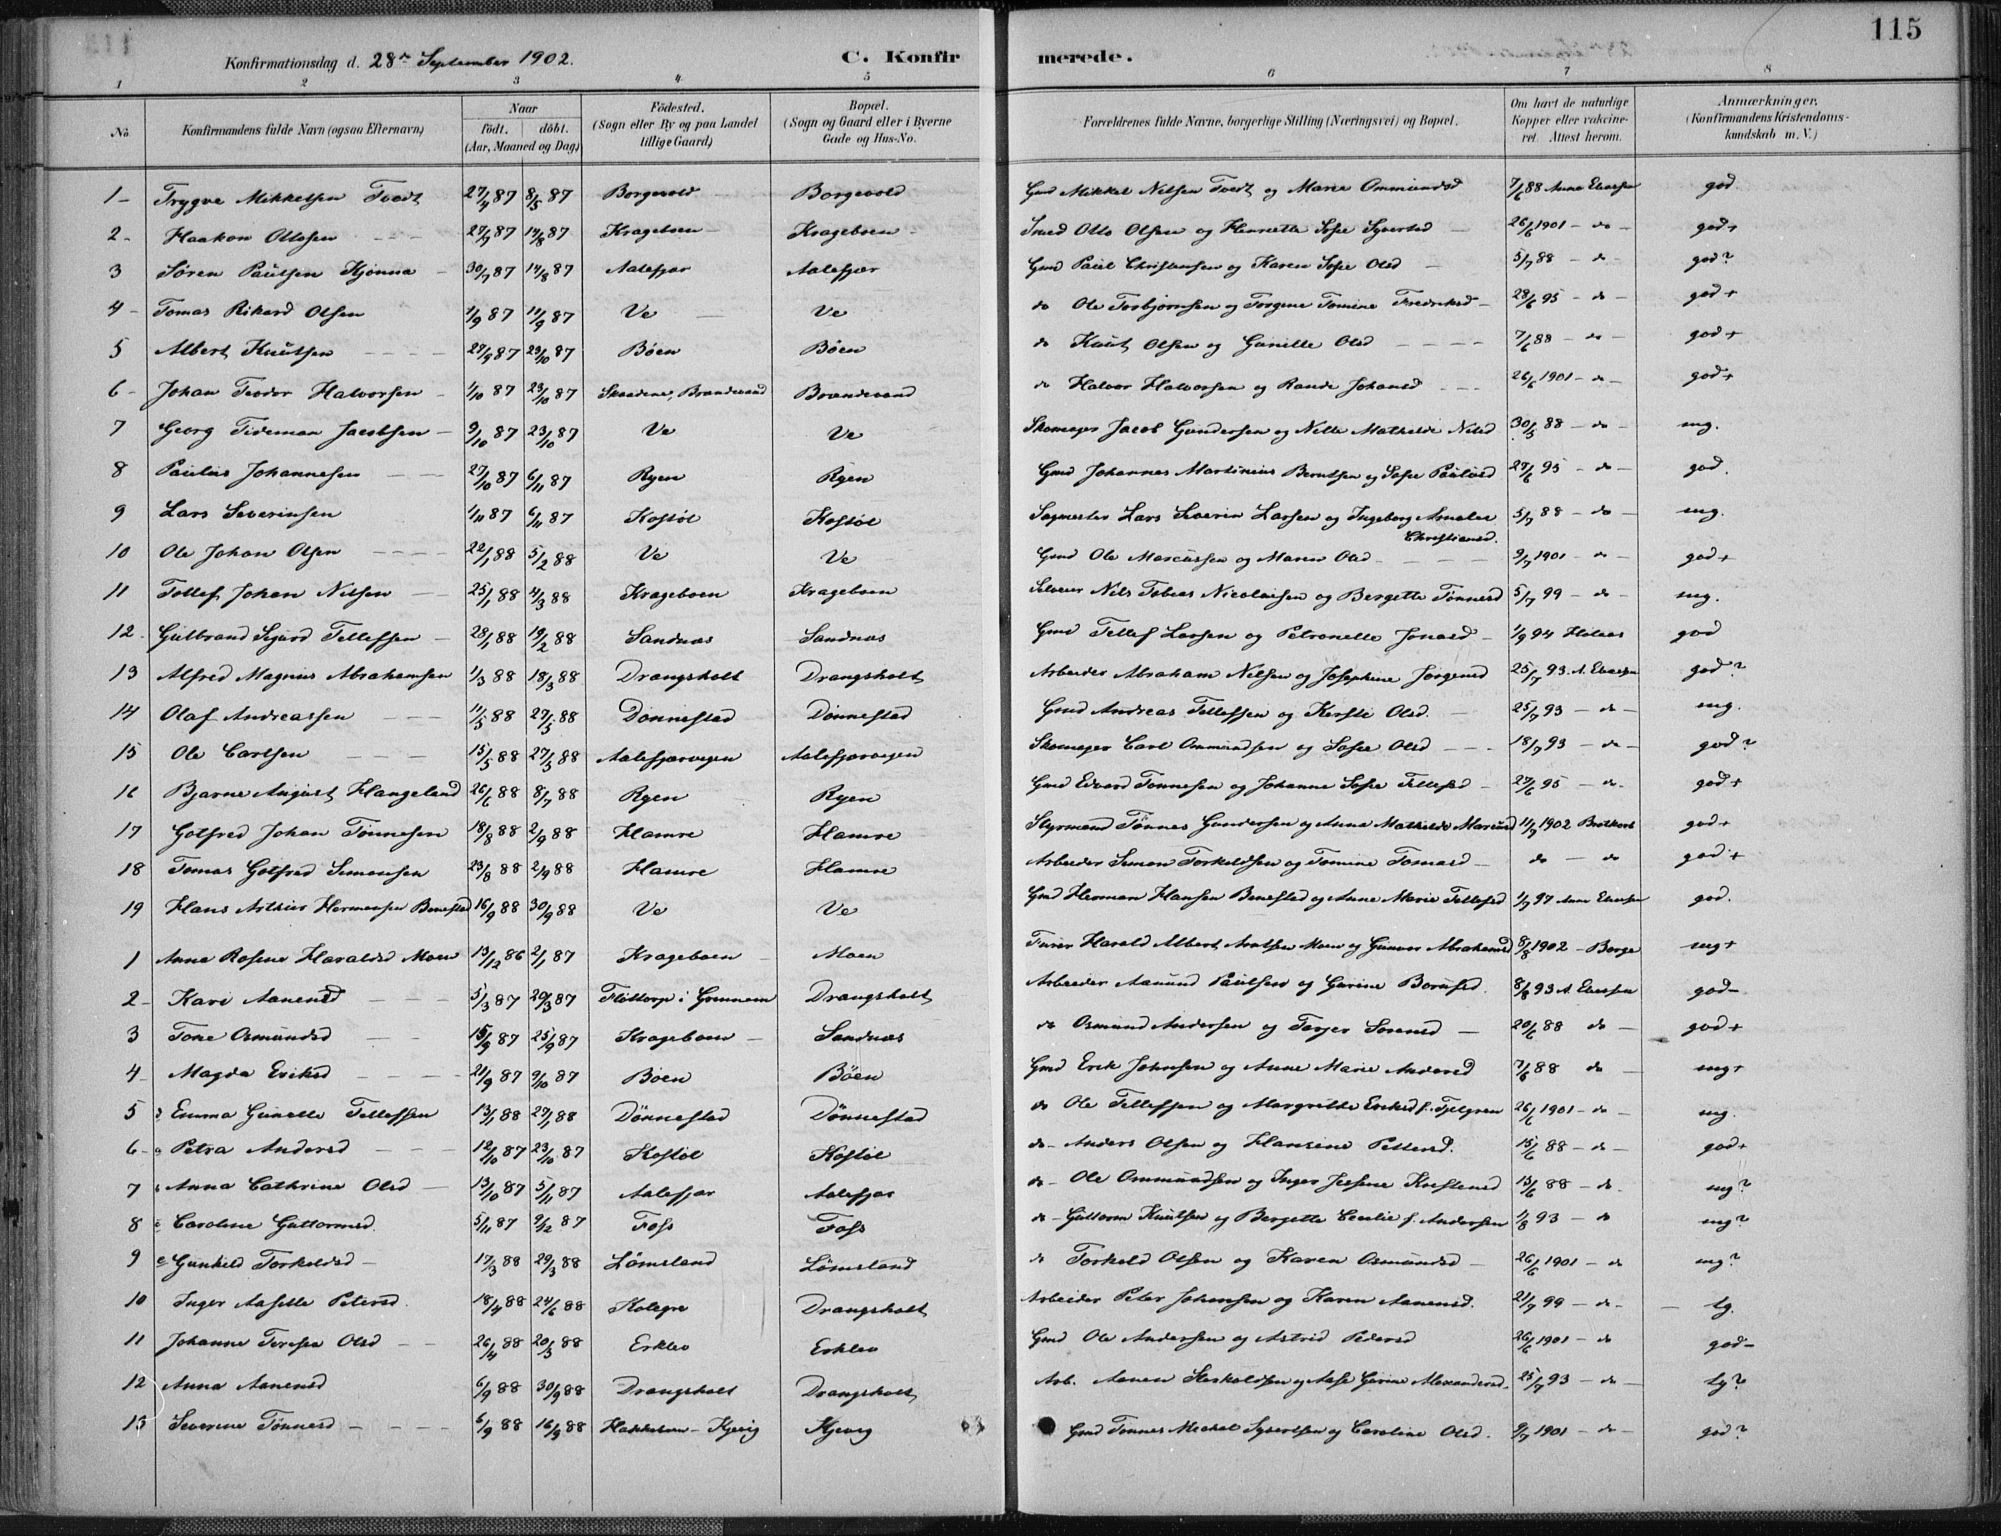 115
Konfirmationsdag d. 28de September 1902. C. Konfirmerede.
1 2 3 4 5 6 7 8
No Konfirmandens fulde Navn (ogsaa Efternavn) Naar født. døbt. (Aar, Maaned og Dag) Fødested. (Sogn eller By og paa Landet tillige Gaard) Bopæl. (Sogn og Gaard eller i Byerne Gade og Hus-No. Forældrenes fulde Navne, borgerlige Stilling (Næringsvei) og Bopæl. Om havt de naturlige Kopper eller vakcineret. Attest herom. Anmærkninger. (Konfirmandens Kristendomskundskab m. V.)
1 - Trygve Mikkelsen Tvedt 27/4 87 8/5 87 Borgevold Borgevold Gmd Mikkel Nilsen Tvedt og Marie Ommundsd 7/6 88 Anna god
2 - Haakon Ottosen 27/7 87 14/8 87 Krageboen Krageboen Smed Otto Olsen og Henriette Sofie Syvertsd 26/6 1901 - do - god+
3 Søren Paulsen Kjønna 30/7 87 14/8 87 Aalefjær Aalefjær Gmd Paul Christensen og Karen Sofie Olsd 5/7 88 - do god?
4 - Tomas Rikard Olsen 1/9 87 11/9 87 Ve Ve do Ole Torbjørnsen og Torgine Tomine Fredriksd 28/6 95 - do god+
5 Albert Knutsen 27/9 87 23/10 87 Bøen Bøen do Knut Olsen og Gunille Olsd 7/6 88 - do - god+
6 - Johan Teodor Halvorsen 1/10 87 23/10 87 Skaadene, Brandevand Brandevand do Halvor Halvorsen og Rande Johansd 26/6 1901 - do - god+
7 Georg Tideman Jacobsen 9/10 87 23/10 87 Ve Ve Skomager Jacob Gundersen og Nille Mathilde Nilsd 30/5 88 - do - mg.
8 Paulus Johannesen 27/10 87 6/11 87 Ryen Ryen Gmd Johannes Martinius Berntsen og Sofie Paulsd 27/6 95 - do god.
9 Lars Severinsen 1/11 87 6/11 87 Kostøl Kostøl Sagmester Lars Severin Larsen og Ingeborg Amalie Christiansd. 5/7 88 - do - mg.
10 Ole Johan Olsen 22/1 88 5/2 88 Ve Ve Gmd Ole Marcussen og Maren Olsd 9/7 1901 - do god+
11 Tollef Johan Nilsen 25/1 88 4/3 88 Krageboen Krageboen Nils Tobias Nicolaisen og Bergette Tønnesd 5/7 99 - do - mg.
12 - Gulbrand Sigurd Tellefsen 28/1 88 19/2 88 Sandnæs Sandnæs Gmd Tellef Larsen og Petronelle Jonasd 1/9 94 god
13 Alfred Magnus Abrahamsen 1/3 88 18/3 88 Drangsholt Drangsholt Arbeider Abraham Nilsen og Josephine Jørgensd 25/7 93 A. god?
14 Olaf Andreassen 11/5 88 27/5 88 Dønnestad Dønnestad Gmd Andreas Tellefsen og Kirsti Olsd. 25/7 93 - do - mg.
15 Ole Carlsen 15/5 88 27/5 88 Aalefjærvegen Aalefjærvegen Skomager Carl Ommundsen og Sofie Olsd 18/7 93 - do - god?
16 Bjarne August Haugeland 26/6 88 8/7 88 Ryen Ryen Gmd Edvard Tønnesen og Johanne Sofie Tellefsd 27/6 95 - do. god+
17 Gotfred Johan Tønnesen 18/8 88 2/9 88 Hamre Hamre Styrmand Tønnes Gundersen og Anna Mathilde Marcusd 11/7 1902 god+
18 Tomas Gotfred Simonsen 23/8 88 2/9 88 Hamre Hamre Arbeider Simon Torkeldsen og Tomine Tomasd do - do god+
19 Hans Arthur Hermansen Benestad 16/9 88 30/9 88 Ve Ve Gmd Herman Hansen Benestad og Anne Marie Tellefsd 1/7 97 Anna god.
1 Anna Rosine Haraldsd Moen 13/12 86 2/1 87 Krageboen Moen Harald Albert Moen og Gunvor Abrahamsd 8/8 1902 - Berge mg+
2 - Kari Aanensd 5/3 87 20/3 87 Flottorp i Grinnem Drangsholt Arbeider Aanund Paulsen og Gurine 8/8 93 A. god-
3 Tone Osmundsd 15/9 87 25/9 87 Krageboen Sandnæs do Osmund Andersen og Terjer Sørensd 20/6 88 do god+
4 - Magda Eriksd 21/9 87 9/10 87 Bøen Bøen Gmd Erik Johnsen og Anne Marie Andersd 7/6 88 do mg+
5 Emma Gunelle Tellefsen 13/1 88 27/1 88 Dønnestad Dønnestad do Ole Tellefsen og Margrethe Eriksd f. Tjelgren 26/6 1901 - do mg.
6 - Petra Andersd 12/10 87 23/10 87 Kostøl Kostøl do - Anders Olsen og Hansine Pettersd. 15/6 88 - do god+
7 Anna Cathrine Olsd 13/10 87 5/11 87 Aalefjær Aalefjær do - Ole Ommundsen og Inger Kristensd 15/6 88 - do. mg?
8 Caroline Guttormsd 5/11 87 9/12 87 Foss Foss do - Guttorm Knutsen og Bergette Cecilie f. Andersen 1/8 93 - do mg?
9 Gunhild Torkeldsd 17/3 88 29/3 88 Lømsland Lømsland do Torkeld Olsen og Karen Osmundsd 26/6 1901 - do mg?
10 Inger Aaselle Petersd. 18/4 88 24/6 88 Drangsholt Arbeider Peter Johnsen og Karen Aanensd. 21/7 99 - do - tg.
11 Johanne Teresia Olsd 26/4 88 20/5 88 Erklev Erklev Gmd Ole Andersen og Astrid Pedersd 26/6 1901 - do god-
12 Anna Aanensd 6/9 88 30/9 88 Drangsholt Drangsholt Arb. Aanen og Aase Gurine Alexandersd. 25/7 93 - do tg?
13 Severine Tønnesd 6/9 88 16/9 88 Kjevig Kjevig Gmd Tønnes Mickal Syvertsen og Caroline Olsd. 9/7 1901 - do - god?